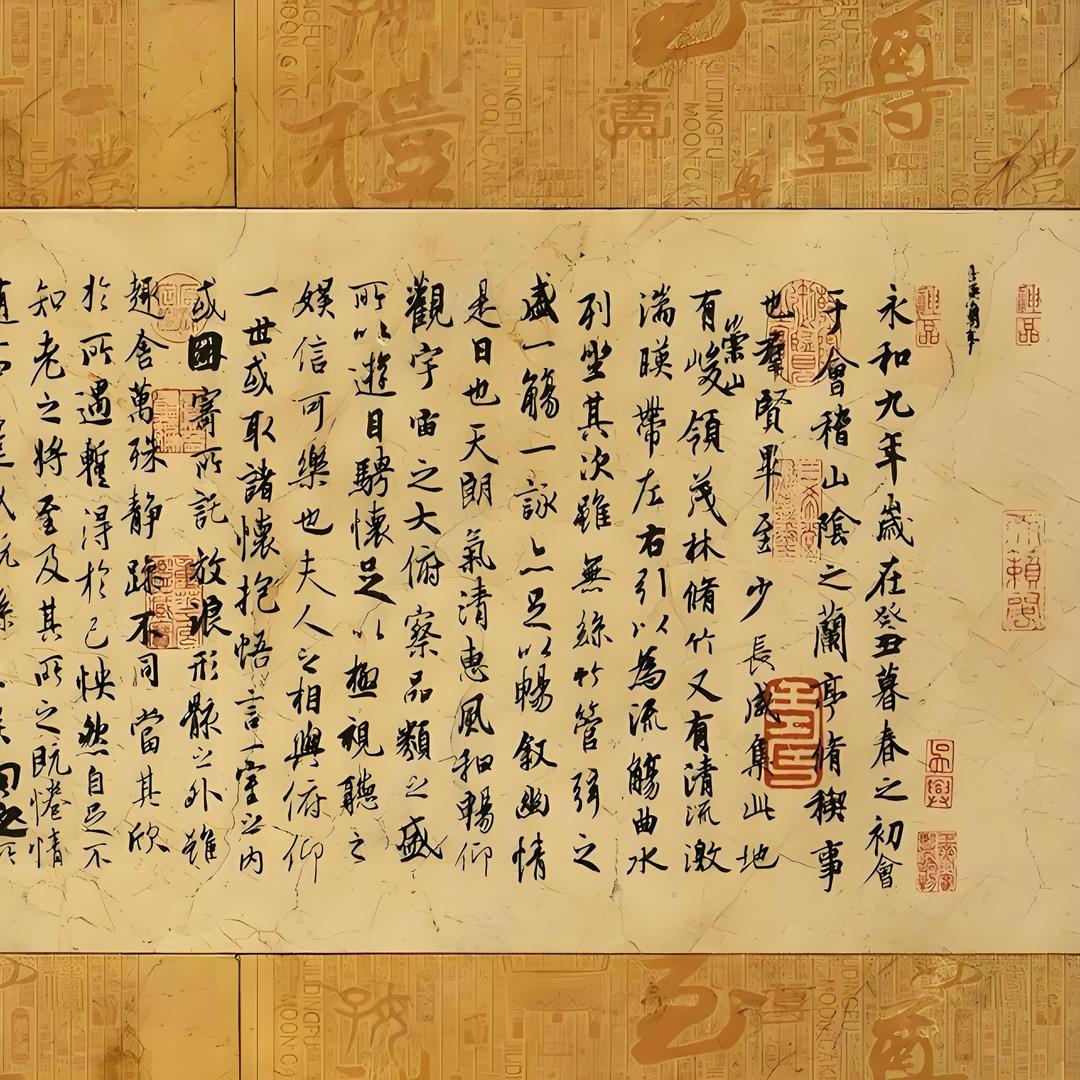 永和九年歲在癸丑暮春之初會
于會稽山陰之蘭亭脩稧事
也羣賢畢至少長咸集此地
有崇山峻領茂林脩竹又有清流激
湍暎帶左右引以為流觴曲水
列坐其次雖無絲竹管弦之
盛一觴一詠亦足以暢叙幽情
是日也天朗氣清惠風和暢仰
觀宇宙之大俯察品類之盛
所以遊目騁懷足以極視聽之
娛信可樂也夫人之相與俯仰
一世或取諸懷抱悟言一室之內
或因寄所託放浪形骸之外雖
趣舍萬殊静躁不同當其欣
於所遇蹔得於己怏然自足不
知老之將至及其所之既惓情
神品
JIUDINGFU
MOONCAKE
禮
尊
至